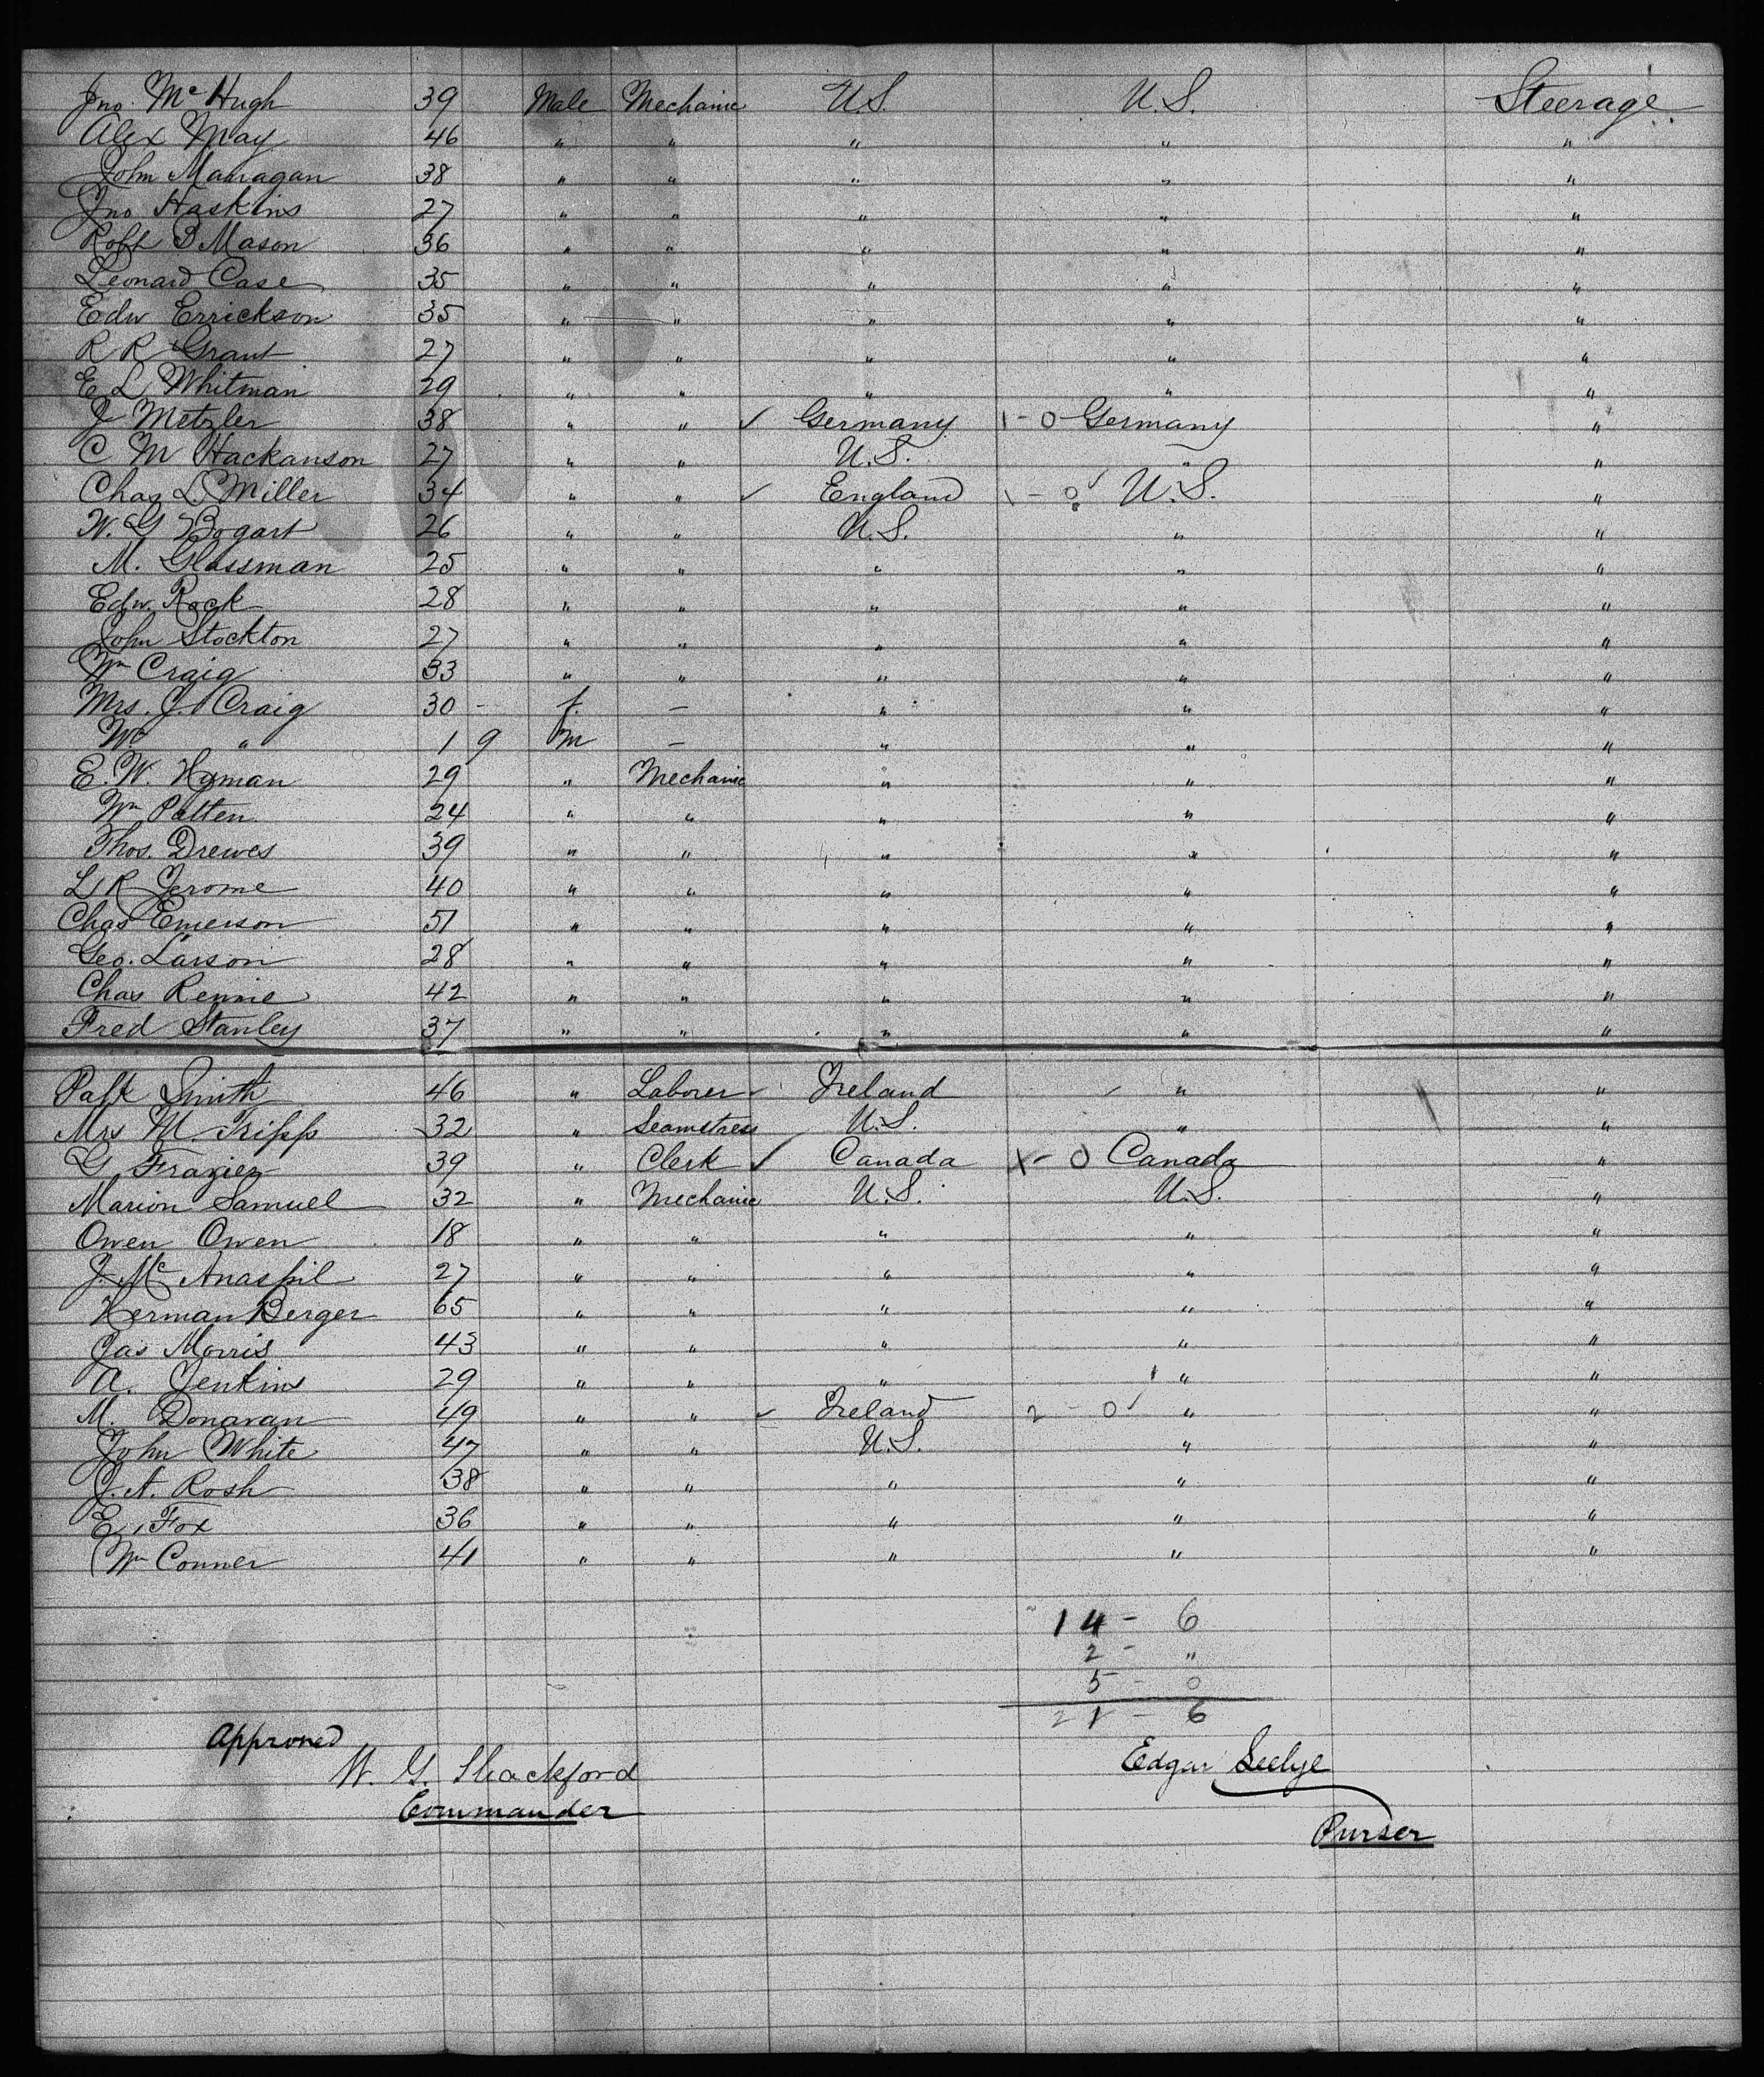 Jno. McHugh 39 Male Mechanic U.S. U.S. Steerage
Alex May 46 " " " " "
John Manragan 38 " " " " "
Jno Haskins 27 " " " " "
Robt B Mason 36 " " " " "
Leonard Case 35 " " " " "
Edw Errickson 35 " " " " "
R R Grant 27 " " " " "
E L Whitman 29 " " " " "
J Metzler 38 " " ✓ Germany 1 - 0 Germany "
C M Hackanson 27 " " U.S. " "
Chas L. Miller 34 " " ✓ England 1 - 0 ✓ U.S. "
W. G Bogart 26 " " U.S. " "
M. Glassman 25 " " " " "
Edw. Rock 28 " " " " "
John Stockton 27 " " " " "
Wm Craig 33 " " " " "
Mrs. J. Craig 30 - f. - " " "
Wm " 1 9 m - " " "
E. W. Hyman 29 " Mechanic " " "
Wm Patten 24 " " " " "
Thos. Drewes 39 " " " " "
L R Jerome 40 " " " " "
Chas Emerson 51 " " " " "
Geo. Larson 28 " " " " "
Chas Rennie 42 " " " " "
Fred Stanley 37 " " " " "
Patk Smith 46 " Laborer ✓ Ireland ✓ " "
Mrs M. Tripp 32 " Seamstress U.S. " "
G Frazier 39 " Clerk ✓ Canada X - 0 Canada "
Marion Samuel 32 " Mechanic U.S. U.S. "
Owen Owen 18 " " " " "
J. Mc 27 " " " " "
Herman Berger 65 " " " " "
Jas Morris 43 " " " " "
A. Jenkins 29 " " " " "
M. Donavan 49 " " ✓ Ireland 2 - 0 ✓ " "
John White 47 " " U.S. " "
J. A. Rosh 38 " " " " "
E. Fox 36 " " " " "
Wm Conner 41 " " " " "
14 - 6
2 - "
5 - 0
21 - 6
Approved
W. G. Shackford
Commander
Edgar Seelye
Purser